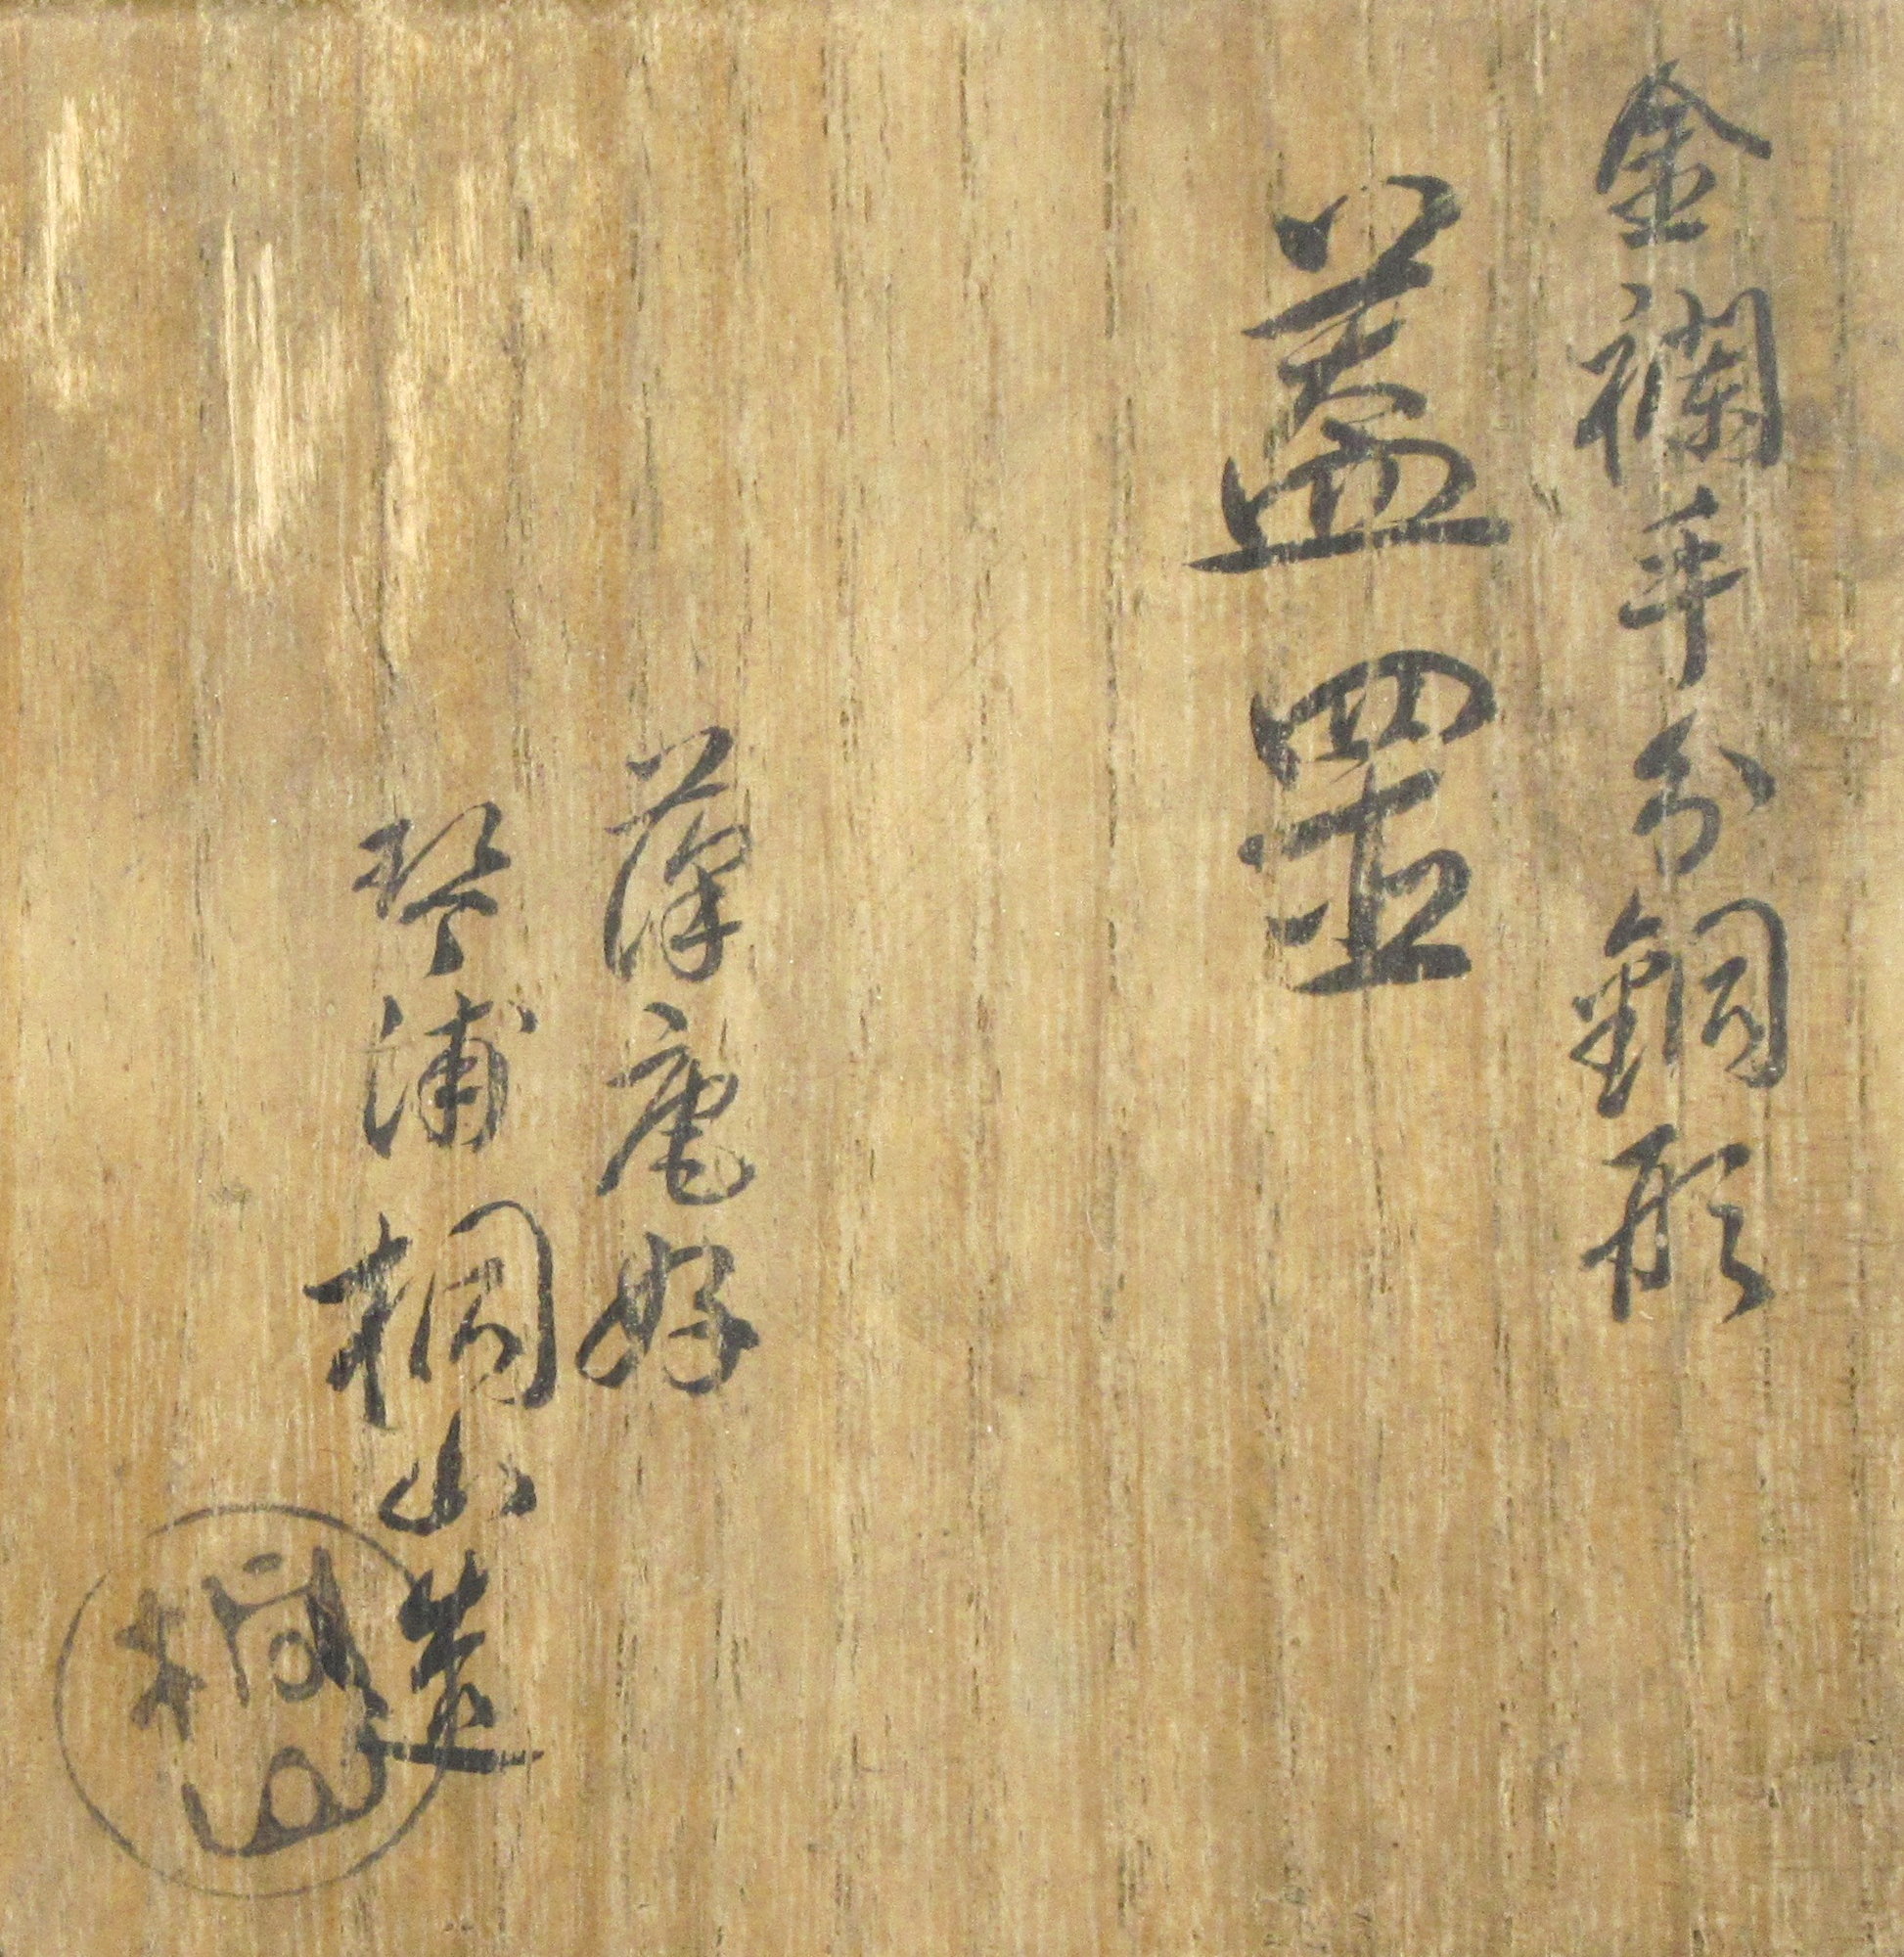 金襴手分銅形
蓋置
薄庵好
琴浦桐山造
桐山